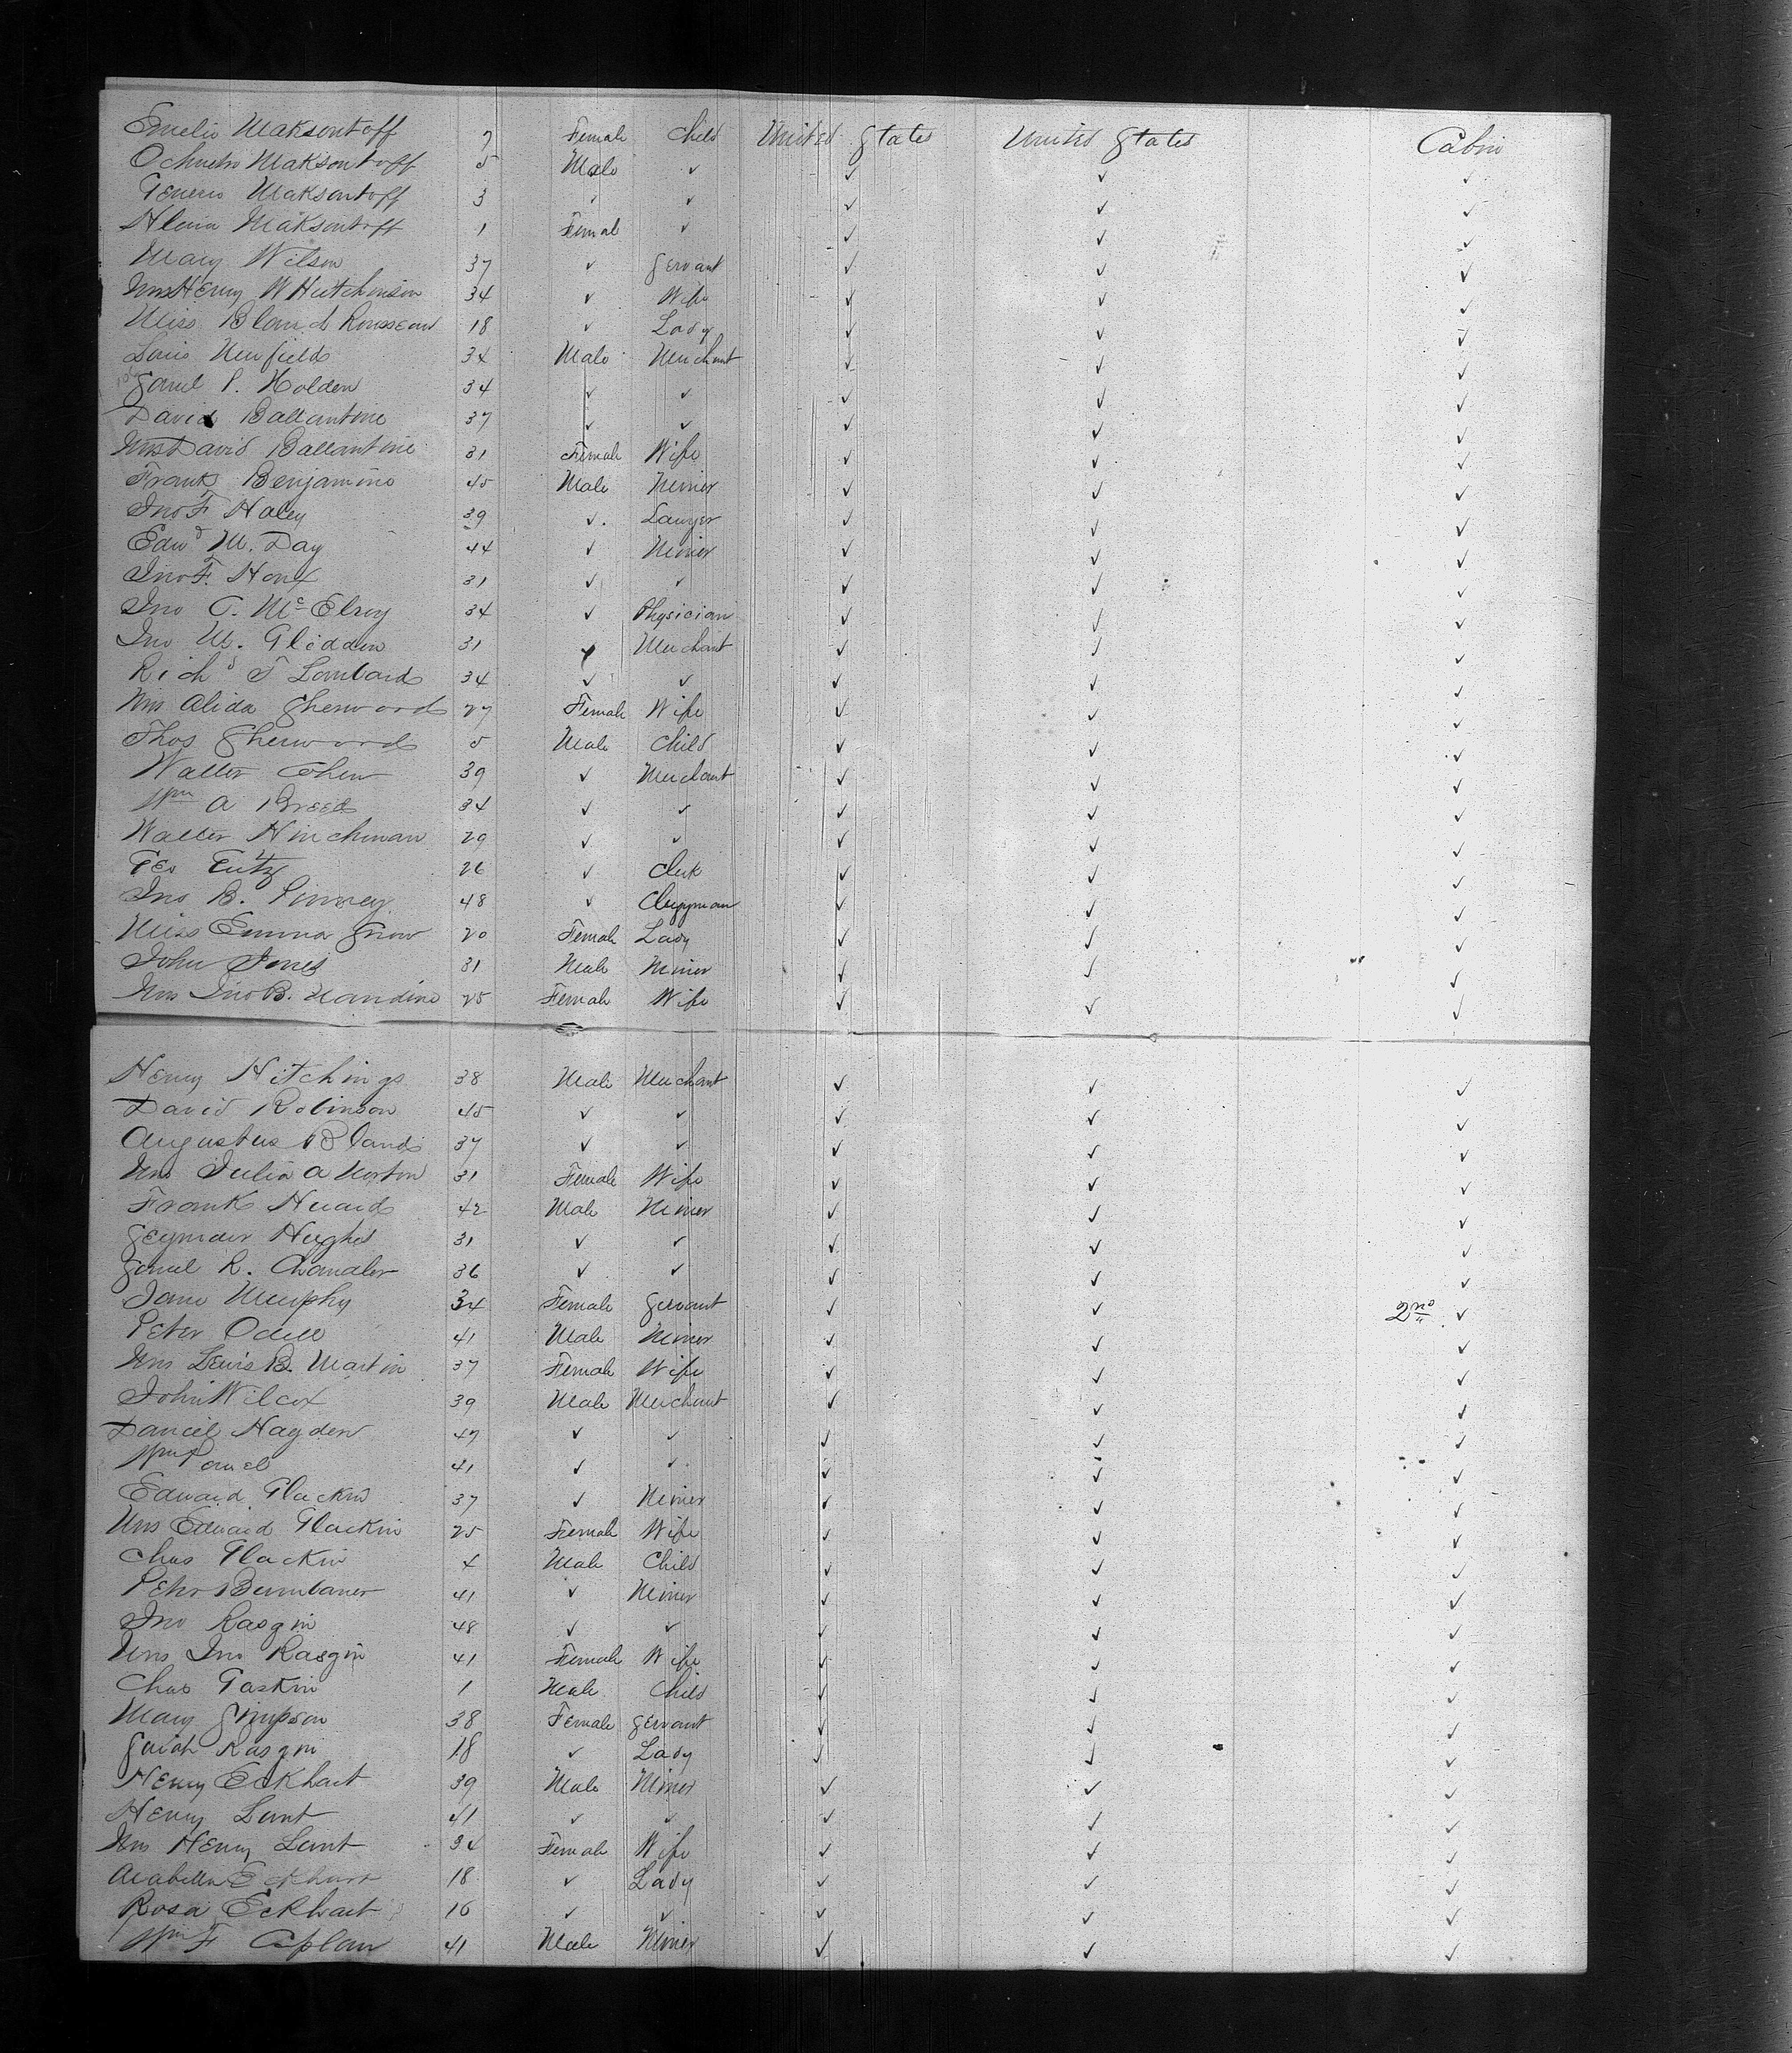 Emelio Maksontoff 7 Female Child United States United States Cabin
Maksontoff 5 Male ✓ ✓ ✓ ✓
Maksontoff 3 ✓ ✓ ✓ ✓ ✓
Maksontoff 1 Femal ✓ ✓ ✓ ✓
Mary Wilson 37 ✓ Servant ✓ ✓ ✓
Mrs Henry W Hutchinson 34 ✓ Wife ✓ ✓ ✓
Miss Blanch Rousseau 18 ✓ Lady ✓ ✓ ✓
Louis Newfield 34 Male Merchant ✓ ✓ ✓
Saml P. Holden 34 ✓ ✓ ✓ ✓ ✓
David Ballantine 37 ✓ ✓ ✓ ✓ ✓
Mrs David Ballantine 31 Female Wife ✓ ✓ ✓
Frank Benjamino 45 Male Miner ✓ ✓ ✓
Jno F Haley 39 ✓ Lawyer ✓ ✓ ✓
Edwd M. Day 44 ✓ Miner ✓ ✓ ✓
Jno F. 31 ✓ ✓ ✓ ✓ ✓
Jno C. McElroy 34 ✓ Physician ✓ ✓ ✓
Jno M. Glidden 31 ✓ Merchant ✓ ✓ ✓
Richd T Lombard 34 ✓ ✓ ✓ ✓ ✓
Mrs Alida Sherwood 27 Female Wife ✓ ✓ ✓
Thos Sherwood 5 Male Child ✓ ✓ ✓
Walter Cohen 39 ✓ Merchant ✓ ✓ ✓
Wm A Breed 34 ✓ ✓ ✓ ✓ ✓
Walter Hinchman 29 ✓ ✓ ✓ ✓ ✓
Geo 26 ✓ Clerk ✓ ✓ ✓
Jno B. Pinney 48 ✓ Clergyman ✓ ✓ ✓
Miss Emma Snow 20 Female Lady ✓ ✓ ✓
John Jones 31 Male Miner ✓ ✓ ✓
Mrs Jno B. 25 Female Wife ✓ ✓ ✓
Henry Hitchings 38 Male Merchant ✓ ✓ ✓
David Robinson 45 ✓ ✓ ✓ ✓ ✓
Augustus Bland 37 ✓ ✓ ✓ ✓ ✓
Mrs Julia A Norton 31 Female Wife ✓ ✓ ✓
Frank Huard 42 Male Miner ✓ ✓ ✓
Seymour Hughes 31 ✓ ✓ ✓ ✓ ✓
Saml R. Chandler 36 ✓ ✓ ✓ ✓ ✓
Jane Murphy 34 Female Servant ✓ ✓ 2nd ✓
Peter Odell 41 Male Miner ✓ ✓ ✓
Mrs Lewis B. Martin 37 Female Wife ✓ ✓ ✓
John Wilcox 39 Male Merchant ✓ ✓ ✓
Daniel Hayden 47 ✓ ✓ ✓ ✓ ✓
Wm Powel 41 ✓ ✓ ✓ ✓ ✓
Edward Glackin 37 ✓ Miner ✓ ✓ ✓
Mrs Edward Glackin 25 Female Wife ✓ ✓ ✓
Chas Glackin 4 Male Child ✓ ✓ ✓
Peter 41 ✓ Miner ✓ ✓ ✓
Jno Rasgin 48 ✓ ✓ ✓ ✓ ✓
Mrs Jno Rasgin 41 Female Wife ✓ ✓ ✓
Chas Gaskin 1 Male Child ✓ ✓ ✓
Mary Simpson 38 Female Servant ✓ ✓ ✓
Sarah Rasgin 18 ✓ Lady ✓ ✓ ✓
Henry Eckhart 39 Male Miner ✓ ✓ ✓
Henry Lunt 41 ✓ ✓ ✓ ✓ ✓
Mrs Henry Lunt 34 Female Wife ✓ ✓ ✓
Arabella Eckhart 18 ✓ Lady ✓ ✓ ✓
Rosa Eckhart 16 ✓ ✓ ✓ ✓ ✓
Wm F Caplan 41 Male Miner ✓ ✓ ✓